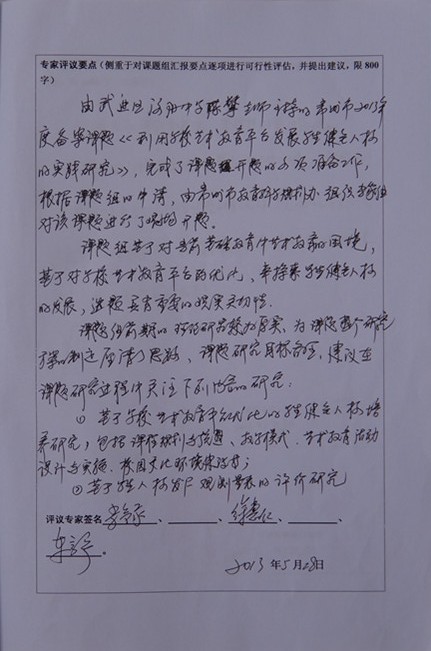 专家评议要点（侧重于对课题组汇报要点逐项进行可行性评估，并提出建议，限 800
字）
由武进区 中学 老师主持的常州市2013年
度备案课题《利用学校艺术教育平台发展学生健全人格
的实践研究》，完成了课题开题的各项准备工作，
根据课题组的申请，由常州市教育科学规划办组织专家组
对该课题进行了现场开题。
课题组基于对当前基础教育中艺术教育的困境，
基于对学校艺术教育平台的优化，来持续学生健全人格
的发展，选题具有重要的现实意义。
课题组前期的 研究较为厚实，为课题整个研究
方案的制定厘清了思路，课题研究目标合理，建议在
课题研究过程中关注下列内容的研究：
① 基于学校艺术教育平台优化的学生健全人格培
养研究，包括课程规划与设置、教学模式、艺术教育活动
设计与实施、校园文化环境 等；
② 基于学生人格发展观测量表的评价研究
评议专家签名 、 、 徐惠仁 、 、
2013 年 5 月 28日